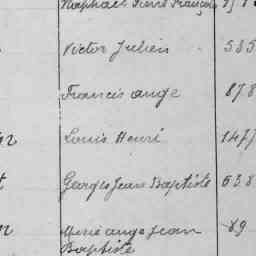 Raphael Pierre François
Victor Julien 585
Francis ange 878
Louis Henri 1477
Georges Jean Baptiste 638
Marie ange Jean 89
Baptiste